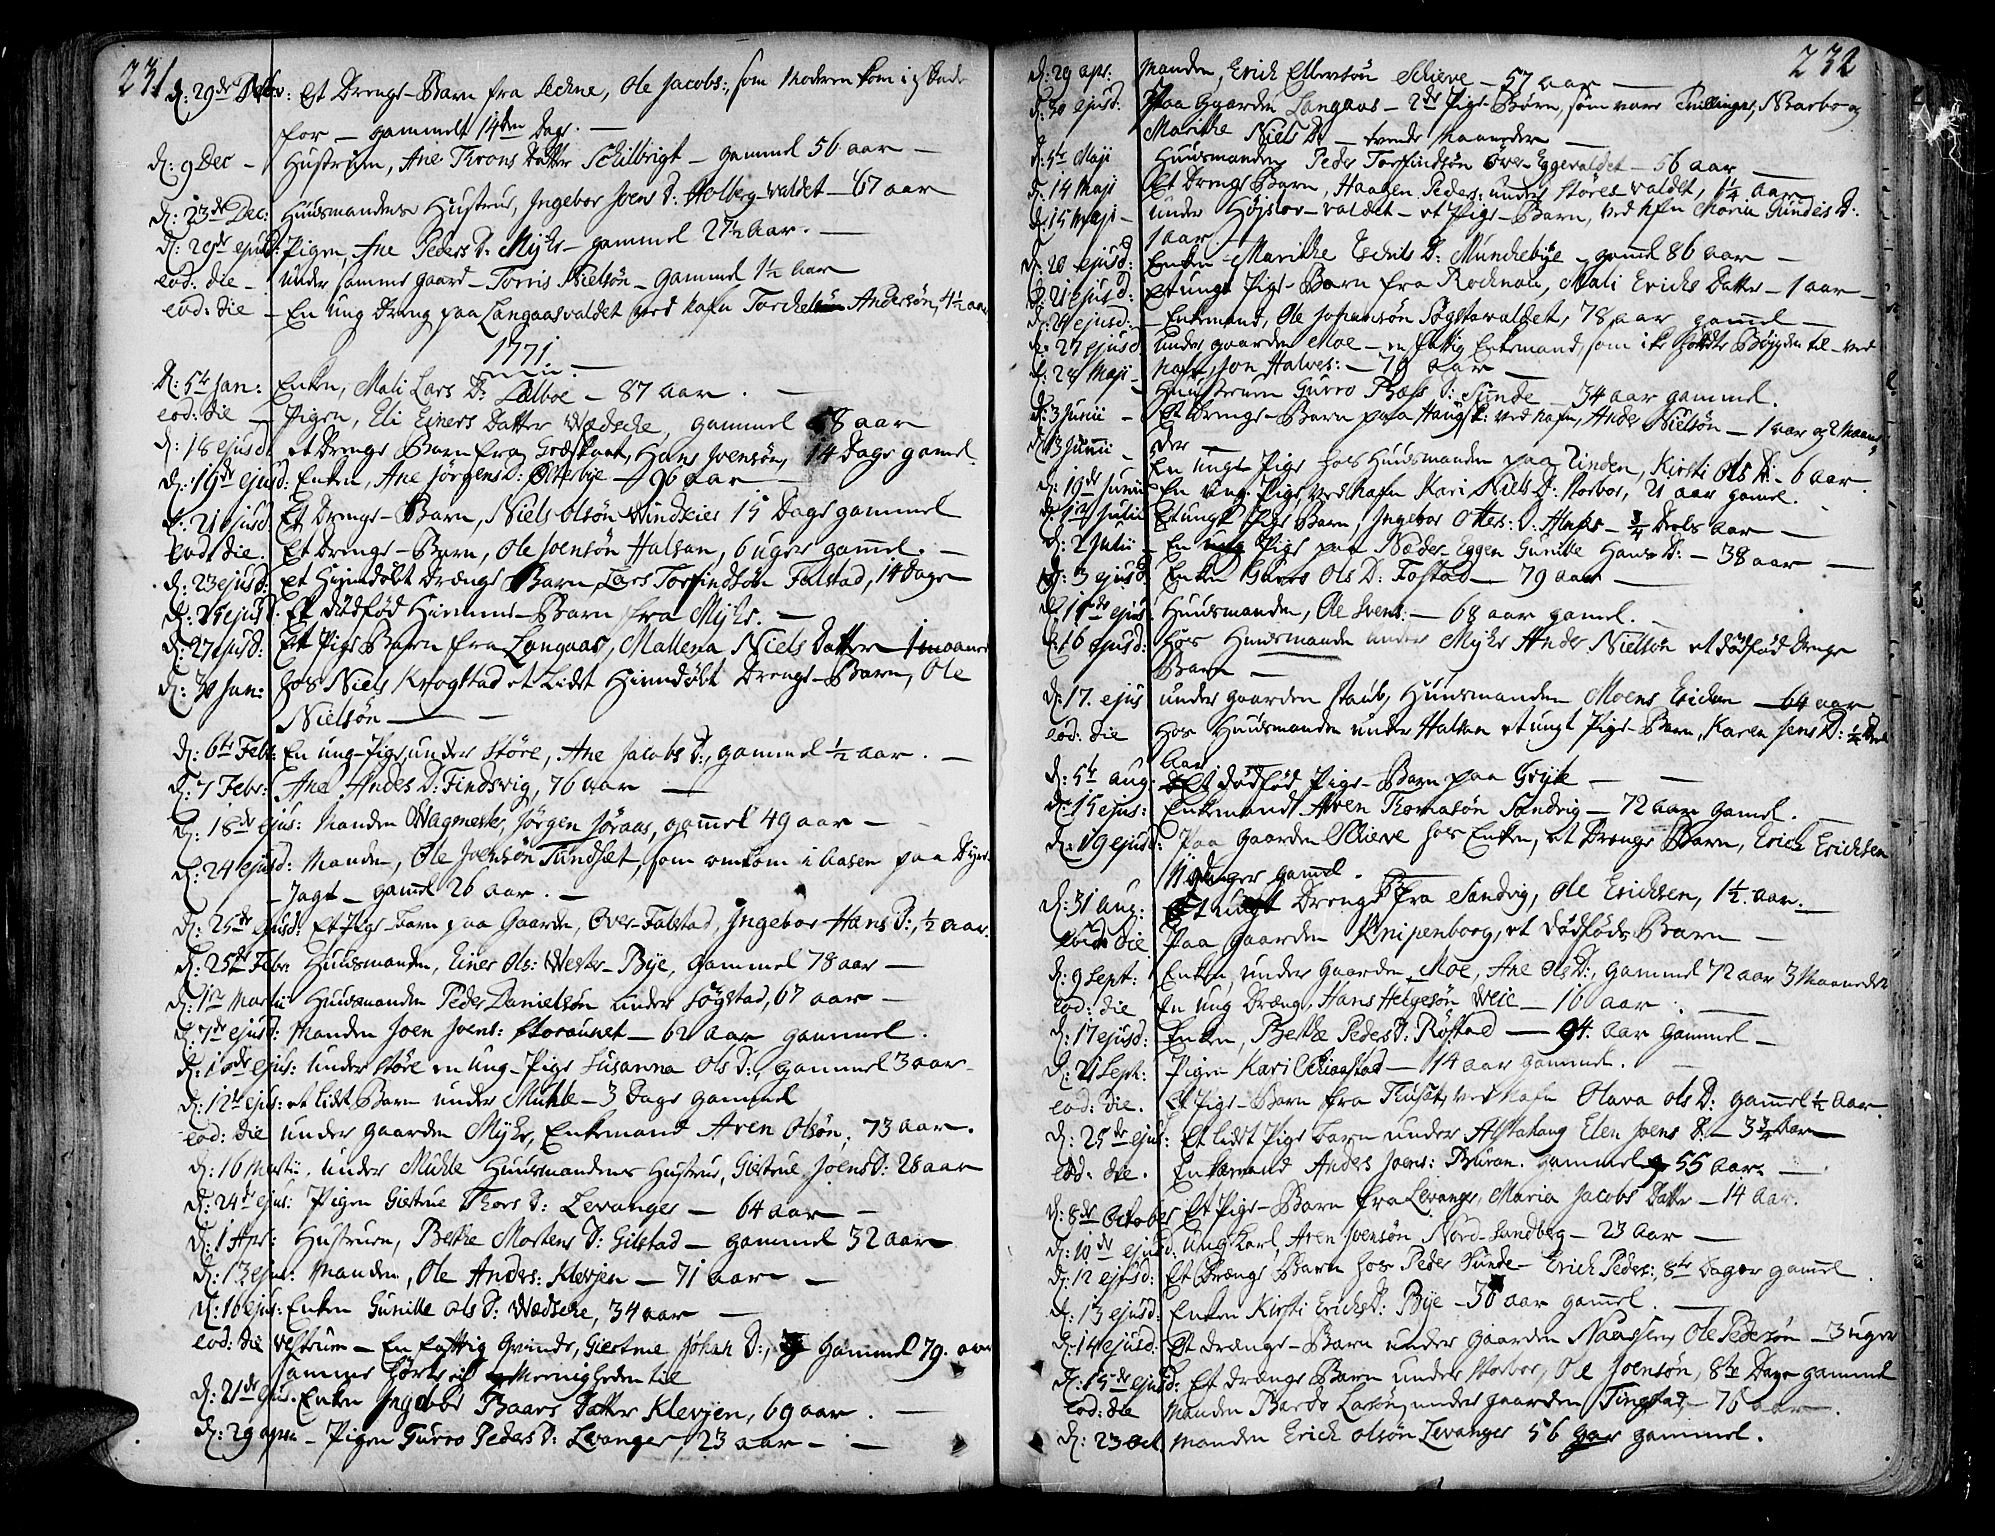 231
d: 29de Nov: Et Drenge-Barn fra Techne, Ole Jacobs:, som Moderen kom i Skade
for — gammelt 14den Dage. —
d: 9 Dec — Hustruen, Ane Throns Datter Schilbrigt — gammel 56 aar —
d: 23de Dec: Huusmandens Hustrue, Ingebor Joens D: Holberg-valdet — 67 aar
d: 29de ejusd: Pigen, Ane Peders D: Mykle — gammel 27½ Aar. —
eod: die — under samme gaard — Torris Nielsøn — gammel 1½ Aar
eod: die — En ung Dreng paa Langaasvaldet ved Nafn Torchel Andersøn, 4½ aar
1771.
d: 5te Jan: Enken, Mali Lars D: Salboe — 87 aar. —
eod: die — Pigen, Eli Einers Datter Wædeche, gammel 58 aar
d: 18 ejusd: et Drenge Barn fra Godskaat, Hans Joensøn, 14 Dage gamel.
d: 19de ejusd: Enken, Ane Jørgens D: Østerbye — 96 aar —
d: 21 ejusd: Et Drenge-Barn, Niels Olsøn Windseies 15 Dage gammel
eod: die. Et Drenge-Barn, Ole Joensøn Halsan, 6 uger gammel. —
d: 23 ejusd: et Hiemdøbt Drænge Barn Lars Torfindsøn Falstad, 14 Dage
d: 25 ejusd: Et dødfød Hiemme-Barn fra Mykle. —
d: 27 ejusd: Et Pige Barn fra Langaas, Mallena Niels Datter 1 maaned
d: 30 Jan: hos Niels Krogstad et Lidet Hiemdøbt Drenge-Barn, Ole
Nielsøn —
d: 6te Febr: En ung Pige, under Støre, Ane Jacobs D:, gammel ½ aar. —
d: 7 Febr: Ane Andes D: Findsvig, 76 aar —
d: 18de ejus: Manden Wagmester, Jørgen Jøraas, gammel 49 aar —
d: 24 ejusd: Manden, Ole Joensøn Tundset, som omkom i Aasen paa Dyre
Jagt — gammel 26 aar. —
d: 25de ejusd: Et Pige-Barn paa Gaarden, Over-Falstad, Ingebor Hans D:, ½ aar.
d: 25de Febr: Huusmanden, Einer Ols: Wester-Bye, gammel 78 aar —
d: 1te Martii Huusmanden Peder Danielsøn under Søgstad, 67 aar —
d: 7de ejusd: Manden Joen Joens: Storaunet — 62 aar gammel.
d: 10de ejus: under Støre en ung-Pige Susanna Ols D:, gammel 3 aar
d: 12te ejus: et lidt Barn under Mühle — 3 Dage gammel
eod: die under gaarden Mykle, Enkemand Aren Olsøn, 73 aar.
d: 16 Martii. under Mühle Huusmandens Hustrue, Giertrue Joens D: 28 aar
d: 24de ejus: Pigen Giertrue Thors D: Levanger — 64 aar —
d: 1 Apr: Hustruen, Berthe Mortens D: Gilstad — gammel 32 aar
d: 13 ejus: Manden, Ole Anders: Klevjen — 71 aar —
d: 16 ejus: Enken Gunille Ols D: Wædsche, 34 aar —
eod: die Vestrum — En fattig Qvinde, Giertrue Johan D:, gammel 79. aar
samme hørte til Menigheden til
d: 21de ejus. Enken Ingebor Baars Datter Klevjen, 69 aar. —
d: 29 April — Pigen Gurro Peders D: Levanger, 23 aar —
232
d: 29 apr: Manden, Erich Ellevsøn Schieve — 57 aar —
d: 30 ejusd: Paa Gaarden Langaas — 2de Pige-Børn, som vare Tvillinger, Barbro og
Marithe Niels D: — trende Maaneder —
d: 5te Maji Huusmanden Peder Torfindsøn Over-Eggevaldet — 56 aar —
d: 14 Maji Et Drenge Barn, Haagen Peders: under Støres valdet, 1¼ aar
d: 15 Maji — under Højslov-valdet — et Pige-Barn, ved Nafn Maria Gundes D:
1 aar —
d: 20 ejusd: Enken Marithe Eschils D: Munchebye — gamel 86 aar —
d: 21 ejusd: et ungt Pige-Barn fra Rochnoen, Mali Erichs Datter — 1 aar —
d: 24 ejusd: — Enkemand, Ole Johansøn Søgstavaldet, 78 aar gammel —
d: 27 ejusd: under gaarden Moe — en fattig Enkemand, som ike hørdte Bøygden til — ved
Nafn, Jon Halves: — 70 aar —
d: 28 Maji — Huustruen Gurro Baars D: Sunde — 34 aar gammel.
d: 3 Junii — Et Drenge-Barn paa Haugsk: ved Nafn, Ander Nielsøn — 1 aar og 2 Maane
der —
d: 13 Junii — En ungt Pige hos Huusmanden paa Linden, Kirsti Ols D: — 6 aar.
d: 19de Junii En ung Pige ved Nafn Kari Niels D: Norbor, 21 aar gamel.
d: 1te Julii Et ungt Pige Barn, Ingebor Otters: D: Alnes — ¾ Deels aar —
d: 2 Julii — En Pige paa Neder-Eggen Gunille Hans D: — 38 aar —
d: 3 ejusd: Enken Guro Ols D: Fostad — 79 aar —
d: 11de ejus: Huusmanden, Ole Svens: — 68 aar gamel. —
d: 16 ejusd: hos Huusmanden under Mykle Ander Nielsøn et dødfød Drenge
Barn —
d: 17. ejus under gaarden Staub, Huusmanden Moens Erichsøn — 64 aar
eod: die hos Huusmanden under Halsan et ungt Pige-Barn, Karen Jens D: ½ Deel
Aar
d: 5te aug: Et dødfød Pige-Barn paa Grytte — —
d: 15 ejus: Enkemand Aren Thomasøn Sandvig — 72 aar gamel. —
d: 19 ejusd: Paa Gaarden Schieve hos Enken, et Drenge Barn, Erich Erichsen
11 uger gammel.
d: 31 aug: Et ungt Drenge fra Sandvig, Ole Erichsen, 1½ aar. —
eod: die Paa Gaarden Knipenborg, et dødføds Barn —
d: 9 Sept: Enken, under Gaarden Moe, Ane Ols D:, gammel 72 aar 3 Maaneder
eod: die En ung Dræng, Hans Helgesøn Weie — 16 aar —
d: 17 ejusd: Enken, Berthe Peders D: Røstad — 94. aar gammel —
d: 21 Sept: Pigen Kari — 14 aar gammel. —
eod: die. Et Pige-Barn fra Thuset, ved Nafn Olava Ols D: gammel ½ Aar.
d: 25de ejus: Et lidt Pige Barn under Alstahaug Elen Joens D: — 3¾ Aar —
eod: die. Enkemand Anders Joens: Buran. gammel 55 aar. —
d: 8de October Et Pige-Barn fra Levanger, Maria Jacobs Datter — 14 aar.
d: 10de ejusd: ung Karl, Aren Joensøn Nord-Sandberg — 23 aar —
d: 12 ejusd: Et Drængs Barn hos Peder Sunde — Erich Peders:, 8te Dager gammel.
d: 13 ejusd: Enken Kirsti Erichs D: Bye — 50 aar gamel. —
d: 14 ejusd: Et Drænge-Barn under gaarden Naassen, Ole Pedersøn — 3 uger
d: 15de ejusd: Et Drænge Barn under Norbor, Ole Joensøn, 8te Dage gammel
eod: die Manden Bardo Larsøn, under gaarden Tingstad, — 76 aar.
d: 23 Oct. Manden Erich Olsøn Levanger 56 aar gammel.